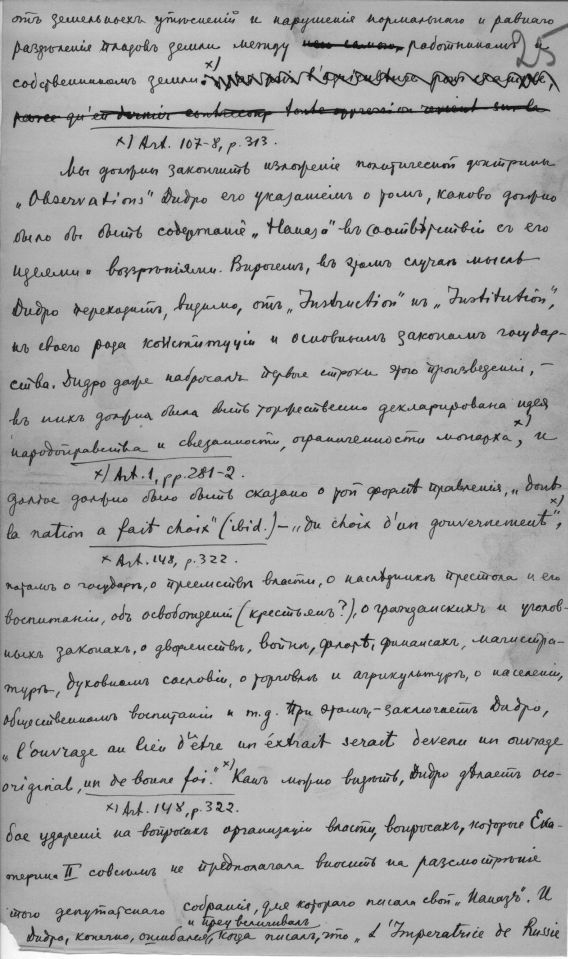 25
отъ земельныхъ утѣсненій и нарушенія нормальнаго и равнаго
раздѣленія плодовъ земли между работникомъ и
собственникомъ земли. x)
parce qu'en dernier contrecoup toute oppression revient sur la
x) Art. 107-8, p. 313.
Мы должны закончить изложеніе политической доктрины
„Observations" Дидро его указаніемъ о томъ, каково должно
было бы быть содержаніе „Наказа" въ соотвѣтствіи съ его
идеями и воззрѣніями. Впрочемъ, въ этомъ случаѣ мысль
Дидро переходитъ, видимо, отъ „Instruction" къ „Institution",
къ своего рода конституціи и основнымъ законамъ государ-
ства. Дидро даже набросалъ первыя строки этого произведенія, –
въ нихъ должна была быть торжественно декларирована идея
народоправства и связанности, ограниченности монарха, x) и
x) Art. 1, pp. 281-2.
далѣе должно было быть сказано о той формѣ правленія, „dont
la nation a fait choix" (ibid.) – „du choix d'un gouvernement", x)
x Art. 148, p. 322.
потомъ о государѣ, о преемствѣ власти, о наслѣдникѣ престола и его
воспитаніи, объ освобожденіи (крестьянъ?), о гражданскихъ и уголов-
ныхъ законахъ, о дворянствѣ, войнѣ, флотѣ, финансахъ, магистра-
турѣ, духовномъ сословіи, о торговлѣ и агрикультурѣ, о населеніи,
общественномъ воспитаніи и т.д. При этомъ, – заключаетъ Дидро,
„l'ouvrage au lieu d'être un extrait serait devenu un ouvrage
original, un de bonne foi." x) Какъ можно видѣть, Дидро дѣлаетъ осо-
x) Art. 148, p. 322.
бое удареніе на вопросахъ организаціи власти, вопросахъ, которые Ека-
терина II совсѣмъ не предполагала вносить на разсмотрѣніе
того депутатскаго собранія, для котораго писала свой „Наказъ". И
и преувеличивалъ
Дидро, конечно, ошибался, когда писалъ, что „L'Imperatrice de Russie